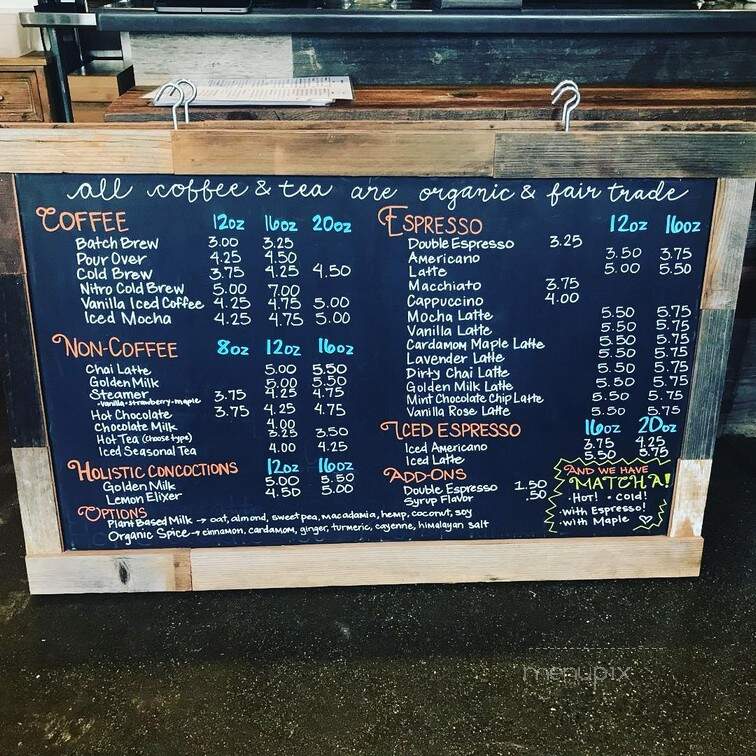 all coffee & tea are organic & fair trade
COFFEE 12oz 16oz 20oz
Batch Brew 3.00 3.25
Pour Over 4.25 4.50
Cold Brew 3.75 4.25 4.50
Nitro Cold Brew 5.00 7.00
Vanilla Iced Coffee 4.25 4.75 5.00
Iced Mocha 4.25 4.75 5.00
NON-COFFEE 8oz 12oz 16oz
Chai Latte 5.00 5.50
Golden Milk 5.00 5.50
Steamer 3.75 4.25 4.75
-vanilla-strawberry-maple
Hot Chocolate 3.75 4.25 4.75
Chocolate Milk 4.00
Hot Tea (choose type) 3.25 3.50
Iced Seasonal Tea 4.00 4.25
HOLISTIC CONCOCTIONS 12oz 16oz
Golden Milk 5.00 5.50
Lemon Elixer 4.50 5.00
OPTIONS
Plant Based Milk → oat, almond, sweet pea, macadamia, hemp, coconut, soy
Organic Spice → cinnamon, cardamom, ginger, turmeric, cayenne, himalayan salt
ESPRESSO 12oz 16oz
Double Espresso 3.25
Americano 3.50 3.75
Latte 5.00 5.50
Macchiato 3.75
Cappuccino 4.00
Mocha Latte 5.50 5.75
Vanilla Latte 5.50 5.75
Cardamom Maple Latte 5.50 5.75
Lavender Latte 5.50 5.75
Dirty Chai Latte 5.50 5.75
Golden Milk Latte 5.50 5.75
Mint Chocolate Chip Latte 5.50 5.75
Vanilla Rose Latte 5.50 5.75
ICED ESPRESSO 16oz 20oz
Iced Americano 3.75 4.25
Iced Latte 5.50 5.75
ADD-ONS
Double Espresso 1.50
Syrup Flavor .50
AND WE HAVE
MATCHA!
·Hot! ·Cold!
·With Espresso!
·With Maple
menupix